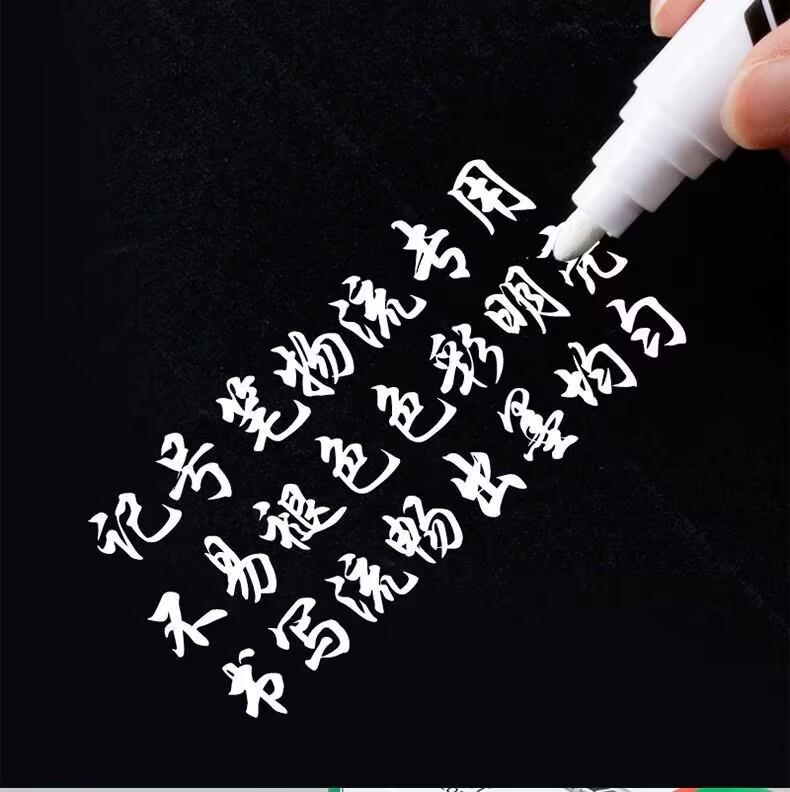 记号笔物流专用
不易褪色色彩明亮
书写流畅出墨均匀